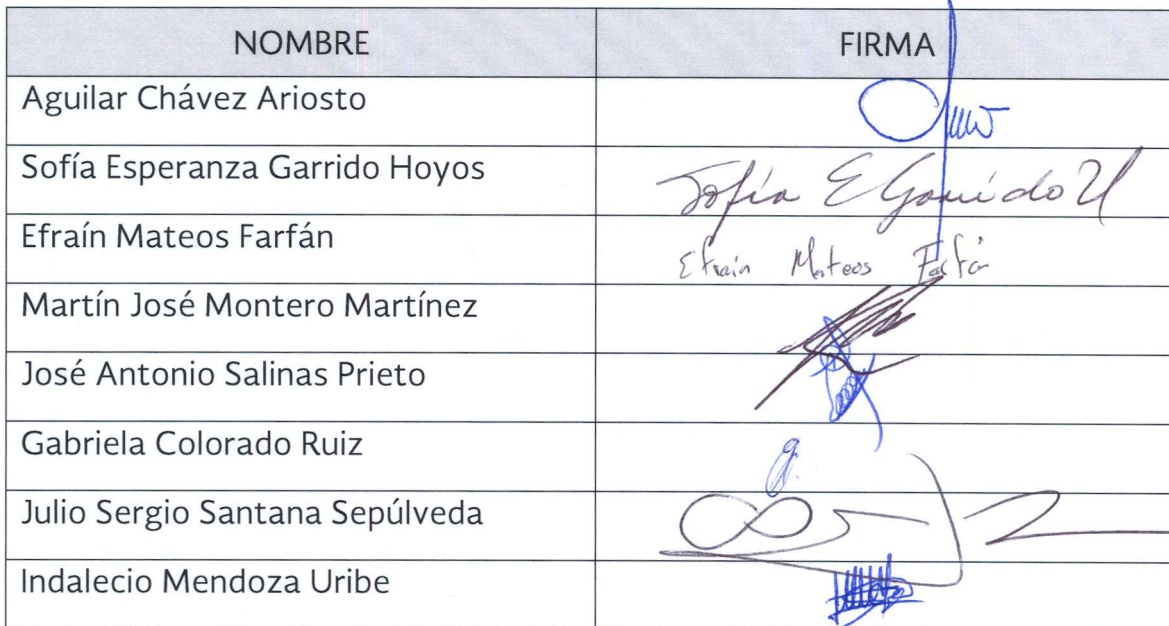 NOMBRE FIRMA
Aguilar Chávez Ariosto
Sofía Esperanza Garrido Hoyos Sofía E Garrido H
Efraín Mateos Farfán Efraín Mateos Farfán
Martín José Montero Martínez
José Antonio Salinas Prieto
Gabriela Colorado Ruiz
Julio Sergio Santana Sepúlveda
Indalecio Mendoza Uribe